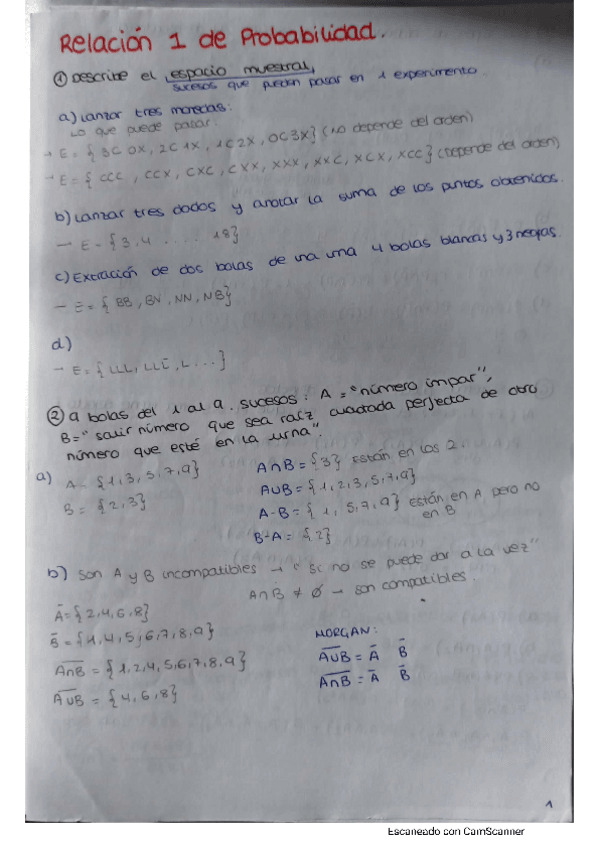 Relación 1 de Probabilidad.
① Describe el espacio muestral,
sucesos que pueden pasar en 1 experimento
a) Lanzar tres monedas:
Lo que puede pasar:
→ E = { 3C 0X, 2C 1X, 1C 2X, 0C 3X} (No depende del orden)
→ E = { CCC, CCX, CXC, CXX, XXX, XXC, XCX, XCC} (Depende del orden)
b) Lanzar tres dados y anotar la suma de los puntos obtenidos.
→ E = {3, 4 ..... 18}
c) Extracción de dos bolas de una urna 4 bolas blancas y 3 negras.
→ E = { BB, BN, NN, NB}
d)
→ E = { LLL, LLL̄, L ...}
② 9 bolas del 1 al 9. sucesos: A = "número impar",
B = "salir número que sea raíz cuadrada perfecta de otro
número que esté en la urna"
a) A = {1, 3, 5, 7, 9}
B = {2, 3}
A∩B = {3} Están en los 2.
A∪B = {1, 2, 3, 5, 7, 9}
A-B = { 1, 5, 7, 9} están en A pero no
en B
B-A = {2}
b) son A y B incompatibles → "si no se puede dar a la vez"
A∩B ≠ ∅ → son compatibles.
Ā = {2, 4, 6, 8}
B̄ = {1, 4, 5, 6, 7, 8, 9}
A̅∩̅B̅ = {1, 2, 4, 5, 6, 7, 8, 9}
A̅∪̅B̅ = {4, 6, 8}
MORGAN:
A̅∪̅B̅ = Ā B̄
A̅∩̅B̅ = Ā B̄
1
Escaneado con CamScanner